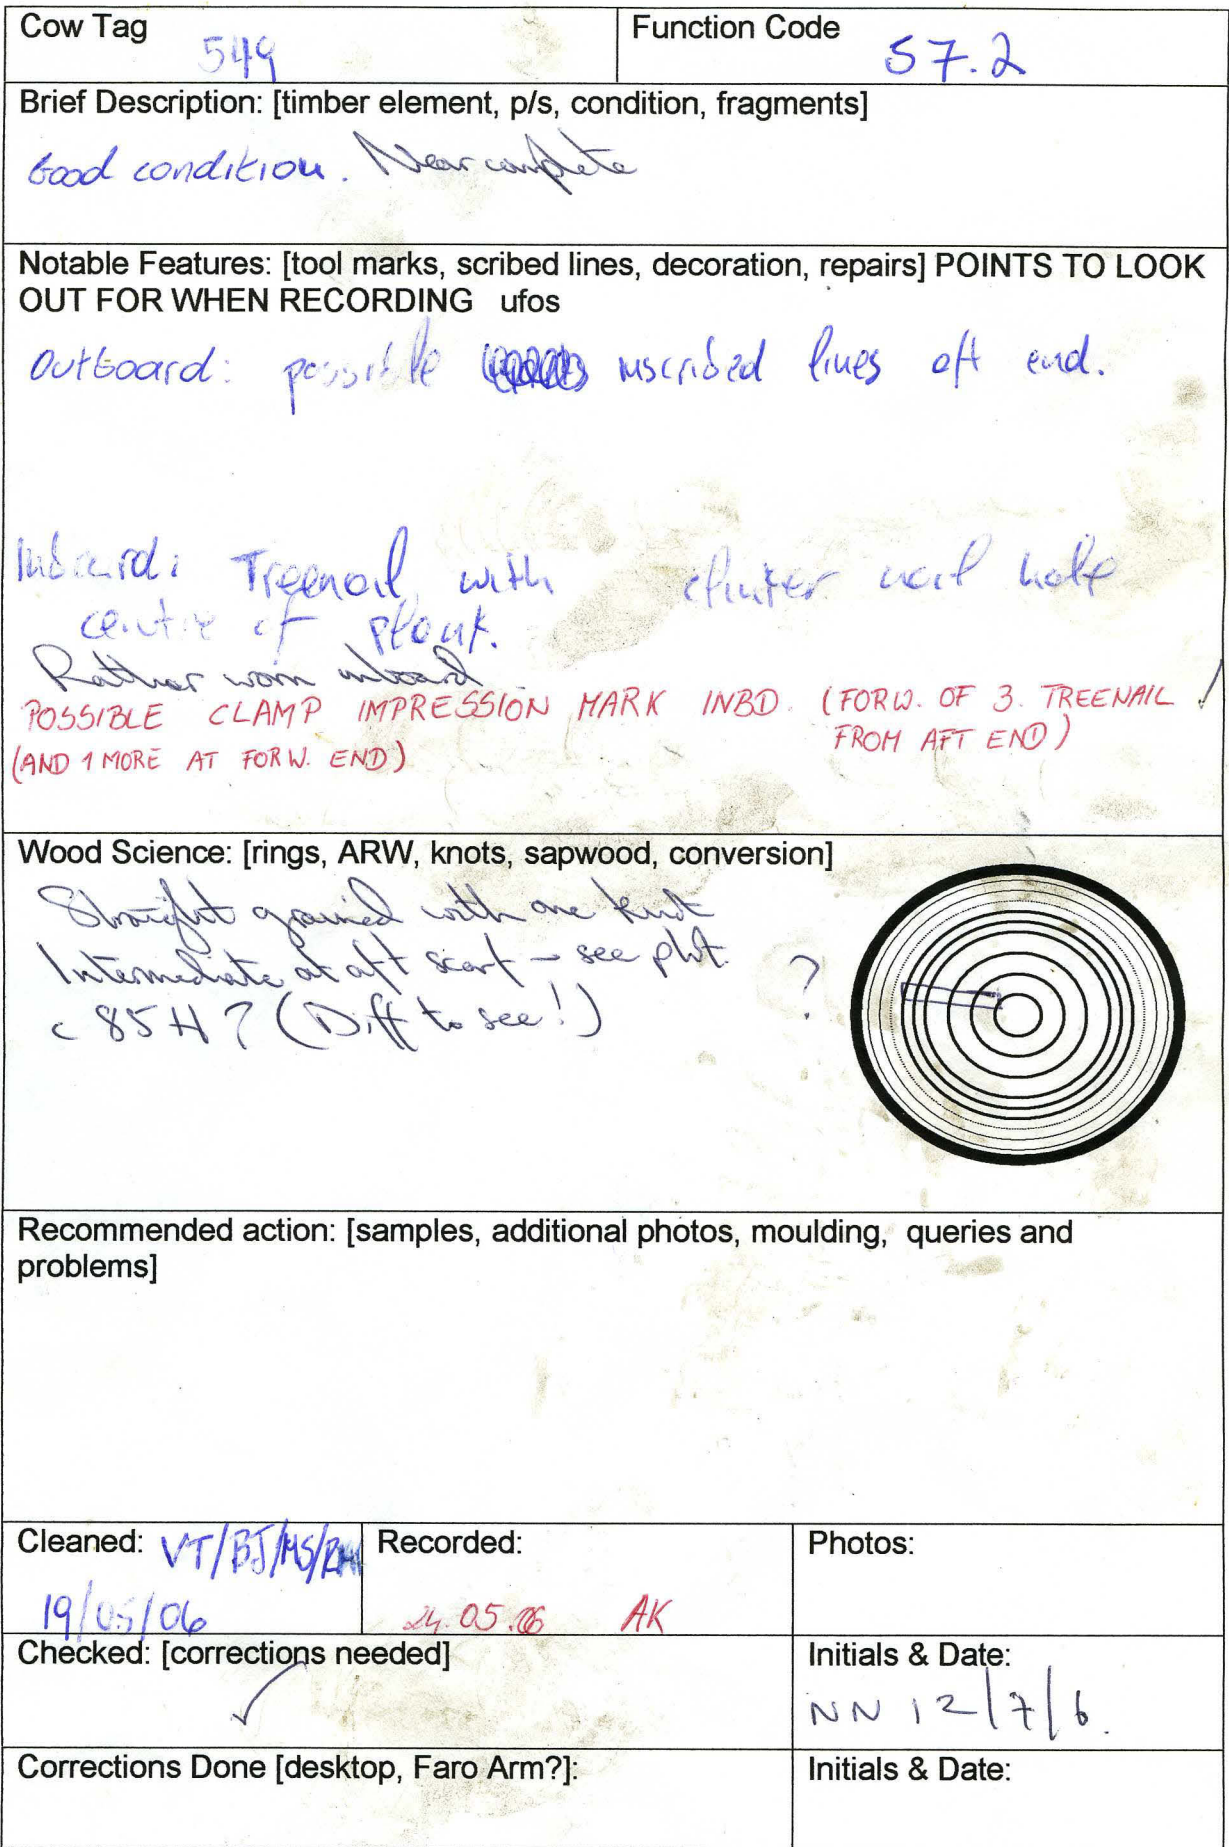 Cow Tag
549
Function Code
S7.2
Brief Description: [timber element, p/s, condition, fragments]
Good condition. Near complete
Notable Features: [tool marks, scribed lines, decoration, repairs] POINTS TO LOOK
OUT FOR WHEN RECORDING ufos
Outboard: possible inscribed lines aft end.
Inboard: Treenail with clinker nail hole
centre of plank.
Rather worn inboard
POSSIBLE CLAMP IMPRESSION MARK INBD. (FORW. OF 3. TREENAIL
FROM AFT END)
(AND 1 MORE AT FORW. END)
!
Wood Science: [rings, ARW, knots, sapwood, conversion]
Straight grained with one knot
Intermediate at aft scarf - see plot
c 85 H ? (Diff to see!)
?
Recommended action: [samples, additional photos, moulding, queries and
problems]
Cleaned: VT/BJ/MS/
19/05/06
Recorded:
24.05.06 AK
Photos:
Checked: [corrections needed]
✓
Initials & Date:
NN 12/7/6.
Corrections Done [desktop, Faro Arm?]:
Initials & Date: